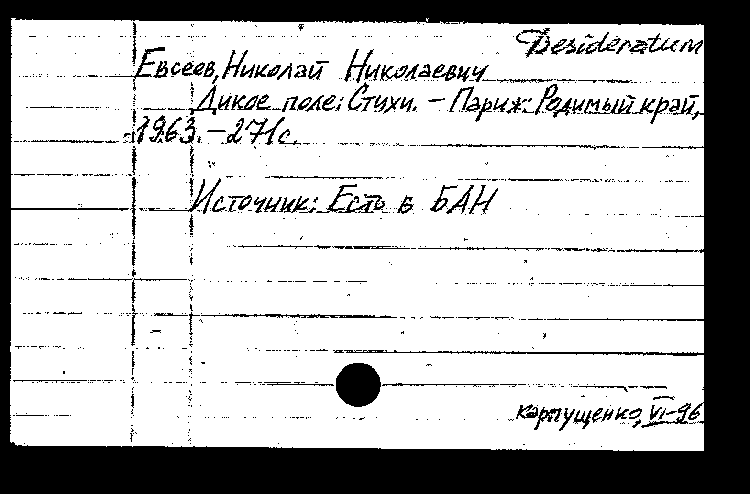 Desideratum
Евсеев, Николай Николаевич
Дикое поле: Стихи. – Париж: Родимый край,
1963. – 271 с.
Источник: Есть в БАН
Карпущенко, VI–96